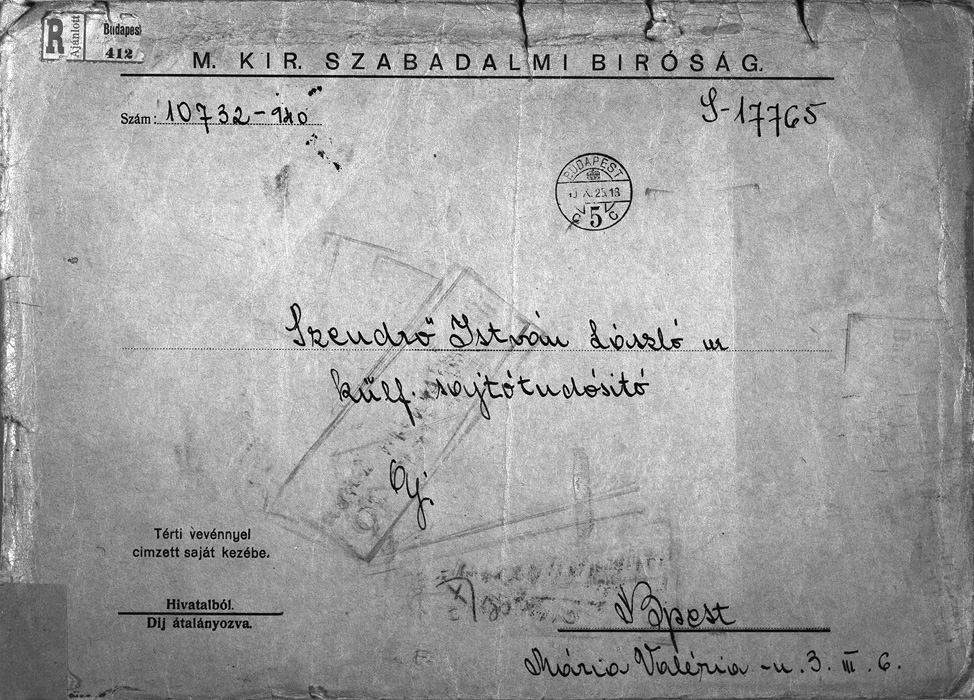 R Ajánlott
Budapest
412
M. KIR. SZABADALMI BIRÓSÁG.
Szám: 10732-940
S-17765
BUDAPEST
5
Szendrő István László ur
külf. sajtótudósitó
Térti vevénnyel
cimzett saját kezébe.
Hivatalból.
Dij átalányozva.
Bpest
Mária Valéria-u. 3. III. 6.